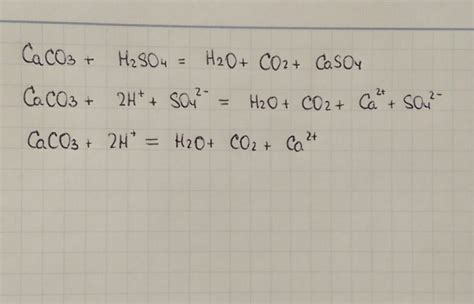 CaCO3 + H2SO4 = H2O + CO2 + CaSO4
CaCO3 + 2H⁺ + SO4²⁻ = H2O + CO2 + Ca²⁺ + SO4²⁻
CaCO3 + 2H⁺ = H2O + CO2 + Ca²⁺